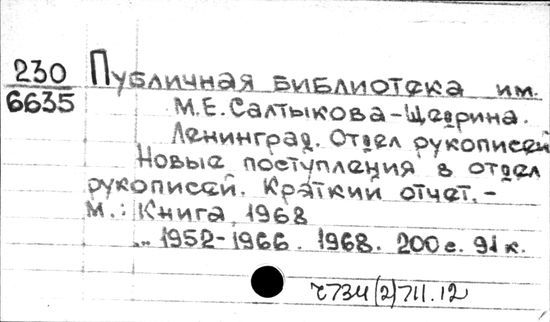 230
6635
Публичная библиотека им.
М.Е.Салтыкова-Щедрина.
Ленинград. Отдел рукописей
Новые поступления в отдел
рукописей. Краткий отчет.-
М.: Книга, 1968
... 1952-1966. 1968. 200 с. 91 к.
ч734(2)711.12